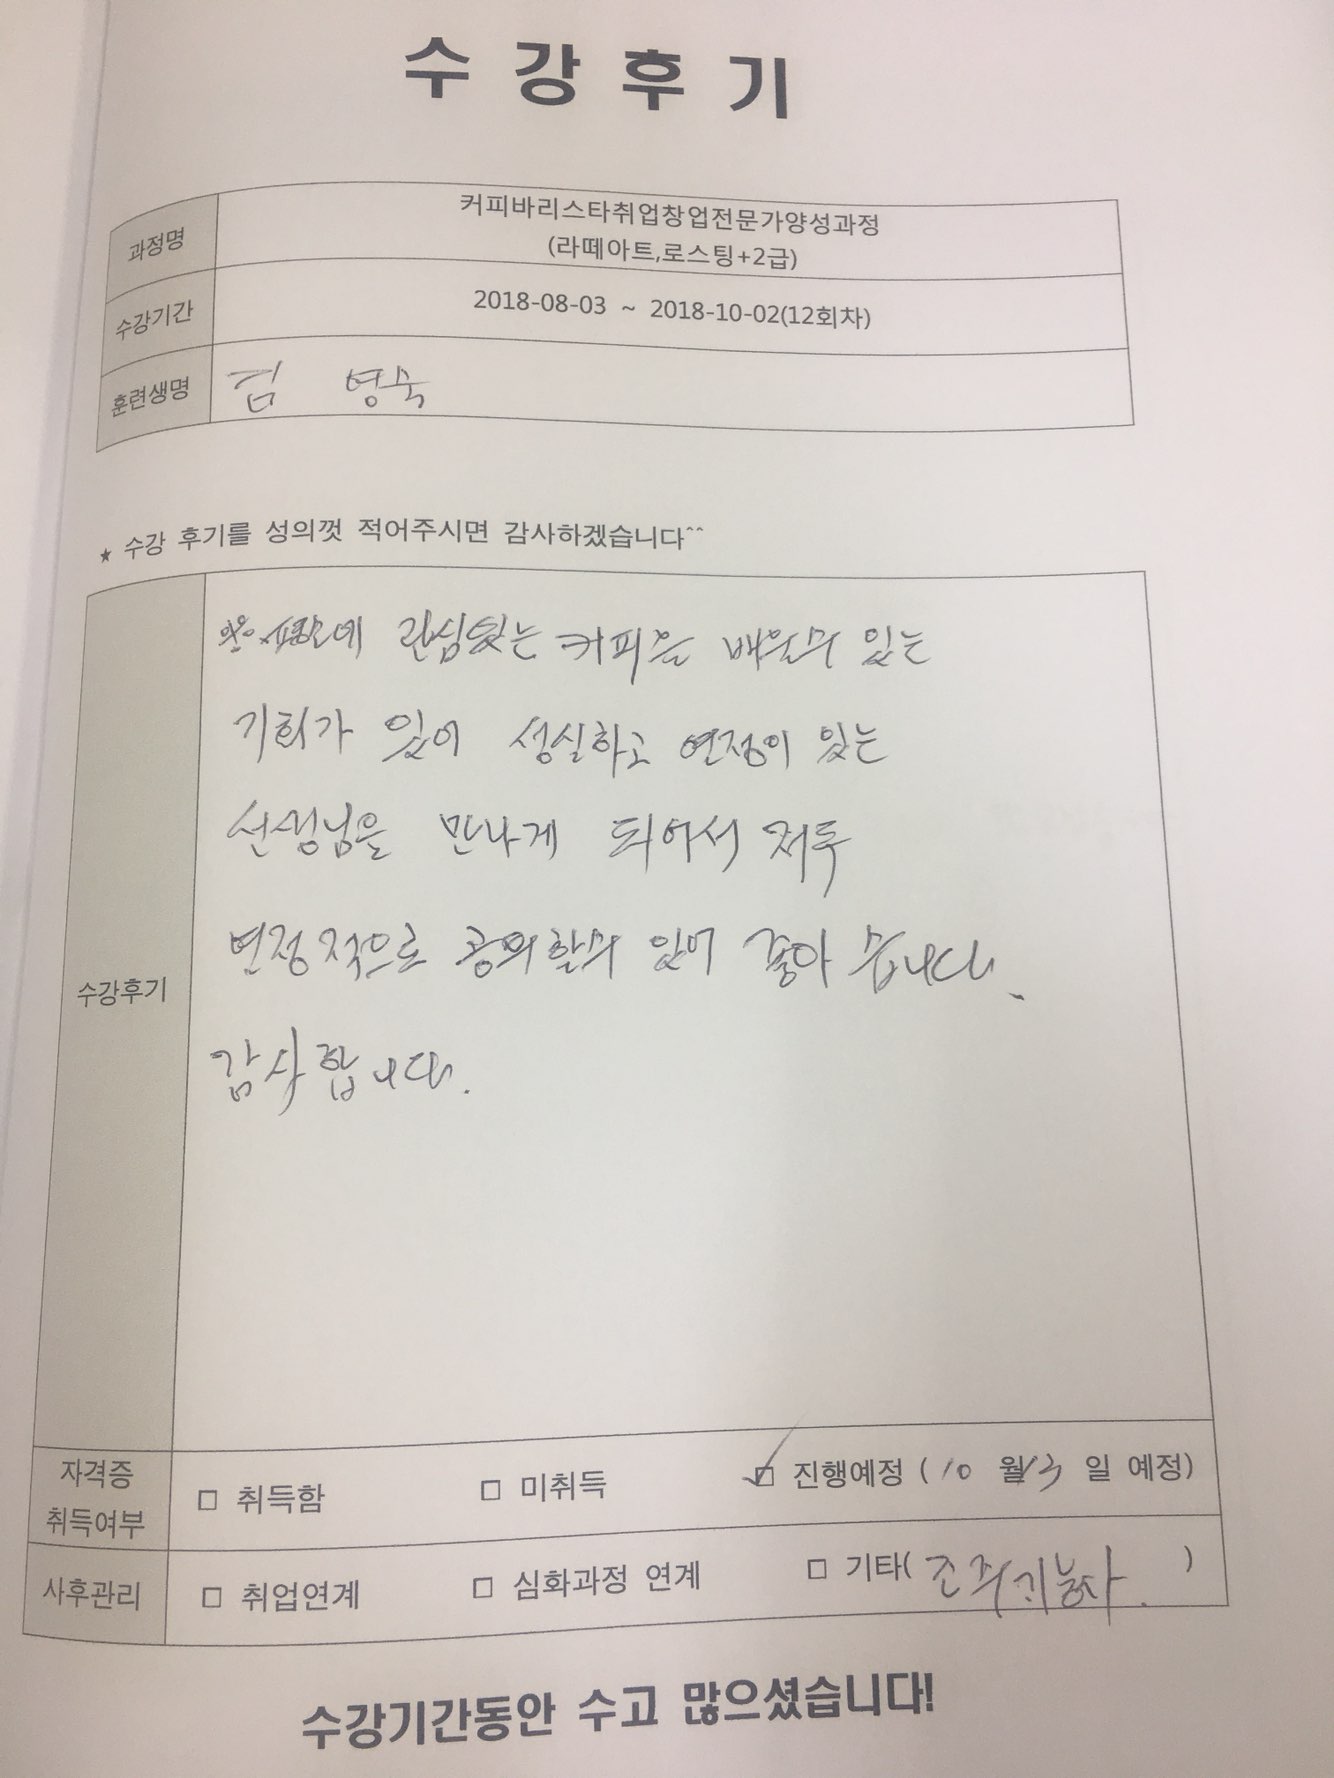 수강후기
과정명
커피바리스타취업창업전문가양성과정
(라떼아트,로스팅+2급)
수강기간
2018-08-03 ~ 2018-10-02(12회차)
훈련생명
김 영숙
★ 수강 후기를 성의껏 적어주시면 감사하겠습니다^^
수강후기
관심있는 커피을 배울수 있는
기회가 있어 성실하고 열정이 있는
선생님을 만나게 되어서 저두
열정적으로 공부할수 있어 좋아습니다.
감사합니다.
자격증
취득여부
□ 취득함 □ 미취득 ☑ 진행예정 (10 월 13 일 예정)
사후관리
□ 취업연계 □ 심화과정 연계 □ 기타( 조주기능사. )
수강기간동안 수고 많으셨습니다!